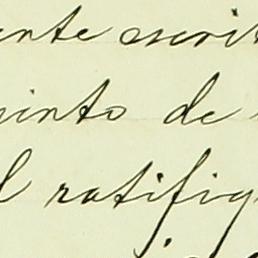 ente escrit
uinto de
l ratifiq